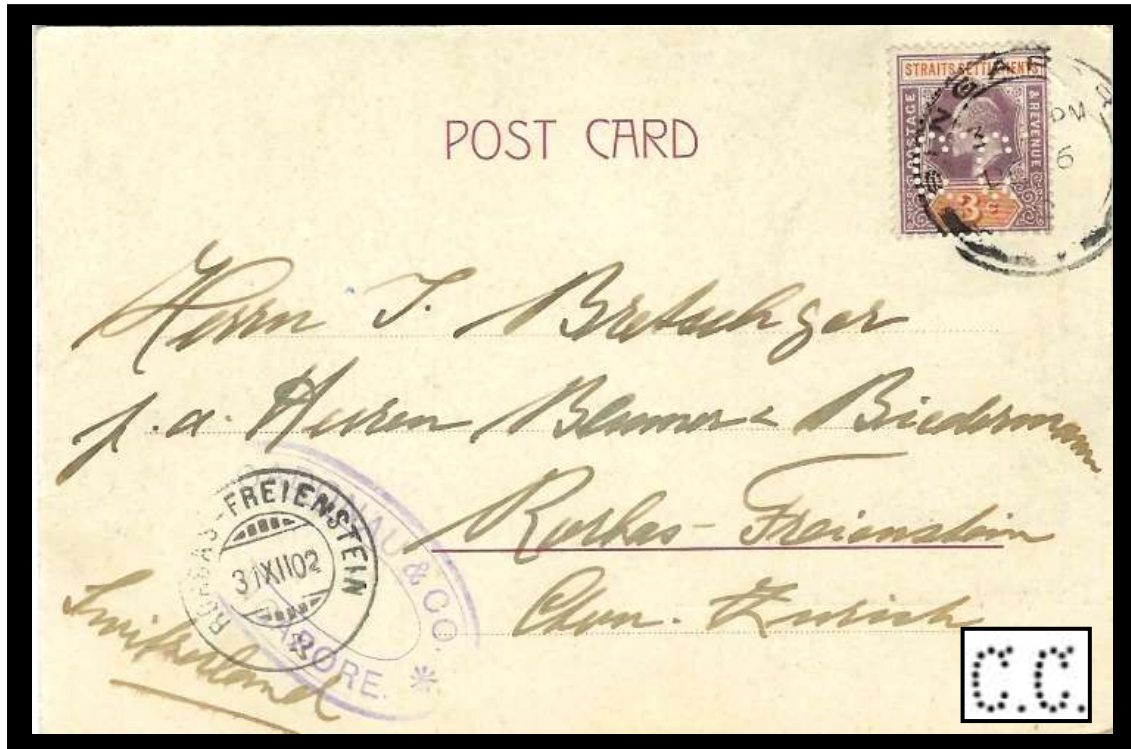 POST CARD
STRAITS SETTLEMENTS
POSTAGE & REVENUE
3c
PM
6
Herrn J. Bretschger
p.a. Herren Blumer & Biedermann
Rorbas-Freienstein
Cton. Zurich
Switzerland
RORBAS-FREIENSTEIN
31XII02
& CO.
PORE.
C.C.